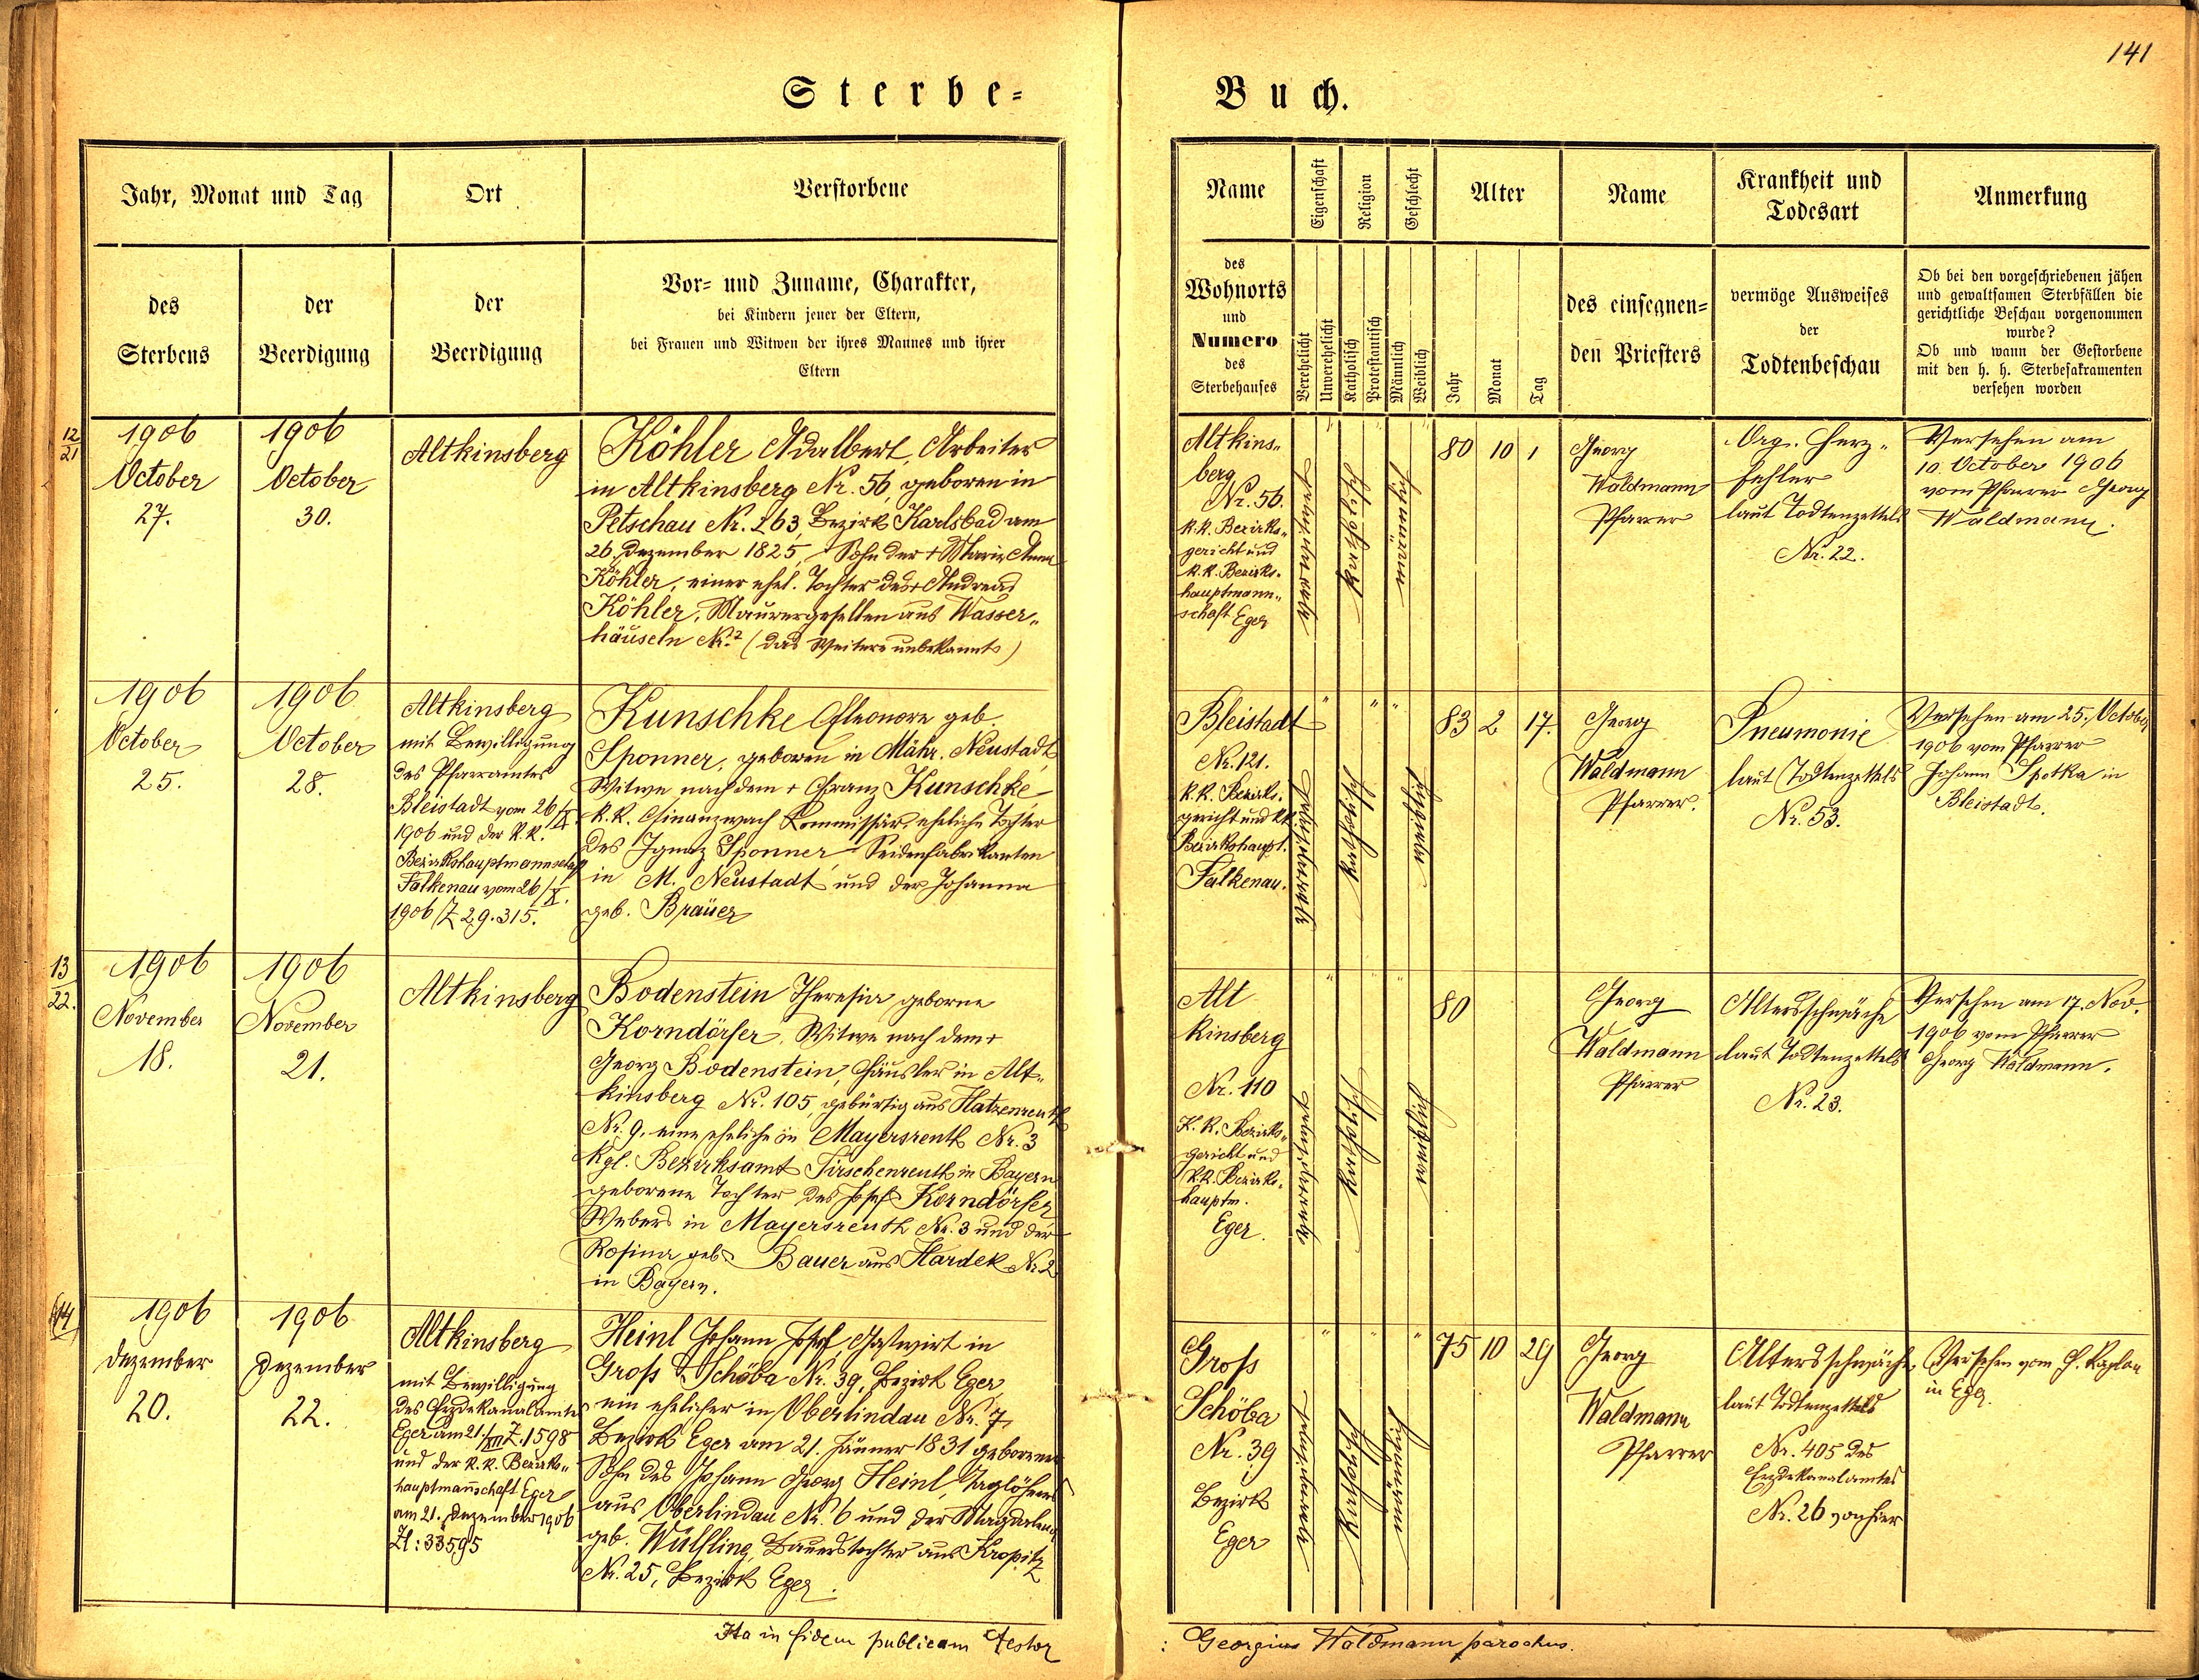 141
Sterbe= Buch.
Jahr, Monat und Tag
Ort
Verstorbene
des
Sterbens
der
Beerdigung
der
Beerdigung
Vor= und Zuname, Charakter,
bei Kindern jener der Eltern,
bei Frauen und Witwen der ihres Mannes und ihrer
Eltern
Name
Eigenschaft
Religion
Geschlecht
Alter
Name
Krankheit und
Todesart
Anmerkung
des
Wohnorts
und
Numero
des
Sterbehauses
Verehelicht
Unverehelicht
Katholisch
Protestantisch
Männlich
Weiblich
Jahr
Monat
Tag
des einsegnen=
den Priesters
vermöge Ausweises
der
Todtenbeschau
Ob bei den vorgeschriebenen jähen
und gewaltsamen Sterbfällen die
gerichtliche Beschau vorgenommen
wurde?
Ob und wann der Gestorbene
mit den h. h. Sterbesakramenten
versehen worden
12
21
1906
October
27.
1906
October
30.
Altkinsberg
Köhler Adalbert, Arbeiter
in Altkinsberg Nr. 56, geboren in
Petschau Nr. 263, Bezirk Karlsbad am
26. Dezember 1825, Sohn der + Maria Anna
Köhler, einer ehel. Tochter des + Andreas
Köhler, Maurergesellen aus Wasser„
häuseln Nr. ? (das Weitere unbekannt)
Altkins„
berg
Nr. 56.
k.k. Bezirks„
gericht und
k.k. Bezirks„
hauptmann„
schaft Eger
verwitwet
katholisch
männlich
80 10 1
Georg
Waldmann
Pfarrer
Org. Herz„
fehler
laut Todtenzettels
Nr. 22.
Versehen am
10. October 1906
vom Pfarrer Georg
Waldmann.
1906
October
25.
1906
October
28.
Altkinsberg
mit Bewilligung
des Pfarramtes
Bleistadt vom 26/X.
1906 und der k.k.
Bezirkshauptmannschaft
Falkenau vom 26/X.
1906 /Z 29.315.
Kunschke Eleonore geb.
Sponner, geboren in Mähr. Neustadt,
Witwe nach dem + Franz Kunschke
k.k. Finanzwach Kommissär, eheliche Tochter
des Ignaz Sponner Seidenfabrikanten
in M. Neustadt und der Johanna
geb. Bräuer
Bleistadt
Nr. 121.
k.k. Bezirks„
gericht und kk
Bezirkshaupt.
Falkenau.
verwitwet
katholisch
weiblich
83 2 17.
Georg
Waldmann
Pfarrer.
Pneumonie
laut Todtenzettels
Nr. 53.
Versehen am 25. October
1906 vom Pfarrer
Johann Spotka in
Bleistadt.
13
22.
1906
November
18.
1906
November
21.
Altkinsberg
Bodenstein Theresia geborne
Korndörfer, Witwe nach dem +
Georg Bodenstein, Häusler in Alt„
kinsberg Nr. 105, gebürtig aus Hatzenreuth
Nr. 9, eine eheliche in Mayersreuth Nr. 3
Kgl. Bezirksamt Tirschenreuth in Bayern
geborene Tochter des Josef Korndörfer
Webers in Mayersreuth Nr. 3 und der
Rosina geb. Bauer aus Hardek Nr. 2
in Bayern.
Alt
kinsberg
Nr. 110
K.k. Bezirks„
gericht und
k.k. Bezirks„
hauptm.
Eger.
verwitwet
katholisch
weiblich
80
Georg
Waldmann
Pfarrer
Altersschwäche
laut Todtenzettels
Nr. 23.
Versehen am 17. Nov.
1906 vom Pfarrer
Georg Waldmann.
14
1906
Dezember
20.
1906
Dezember
22.
Altkinsberg
mit Bewilligung
des Erzdekanalamtes
Eger am 21./XII Z. 1598
und der k.k. Bezirks„
hauptmannschaft Eger
am 21. Dezember 1906
Zl: 33595
Heinl Johann Josef Gastwirt in
Gross Schöba Nr. 39, Bezirk Eger
ein ehelicher in Oberlindau Nr. 7
Bezirk Eger am 21. Jänner 1831 geborener
Sohn des Johann Georg Heinl, Taglöhners
aus Oberlindau Nr. 6 und der Magdalena
geb. Wülfling, Bauerstochter aus Kropitz
Nr. 25, Bezirk Eger.
Gross
Schöba
Nr. 39
Bezirk
Eger
verwitwet
katholisch
männlich
75 10 29
Georg
Waldmann
Pfarrer
Altersschwäche
laut Todtenzettels
Nr. 405 des
Erzdekanalamtes
Nr. 26 von hier
Versehen vom H. Kaplan
in Eger
Ita in fidem publicam testor
: Georgius Waldmann parochus.